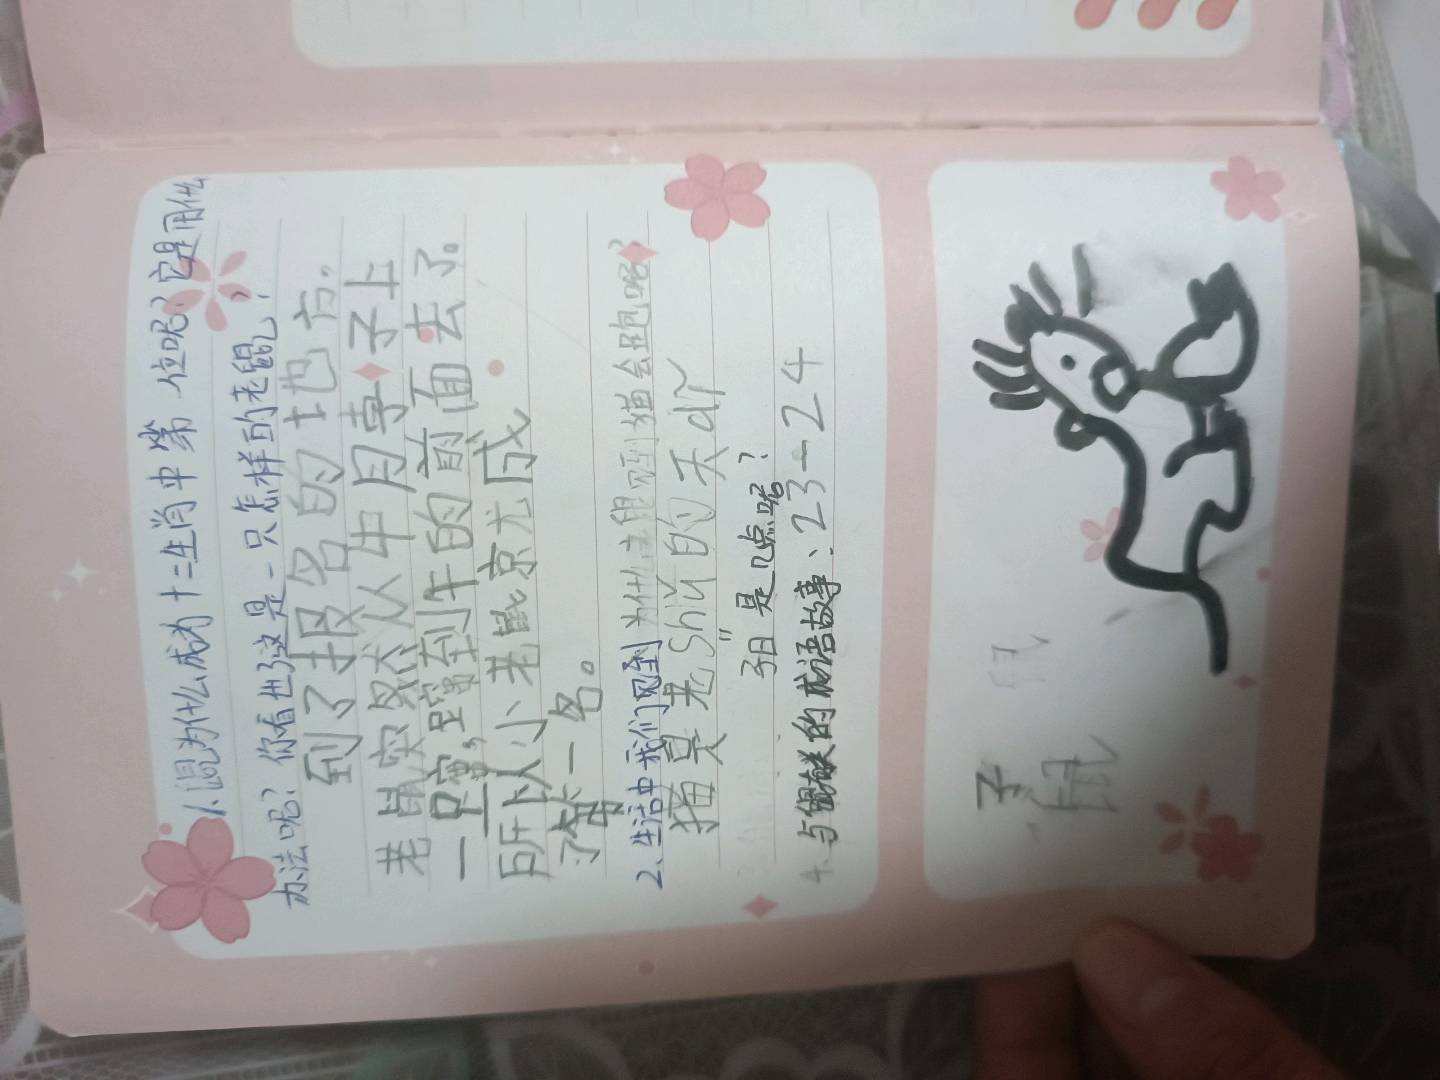 1、鼠为什么成为十二生肖中第一位呢？它是用什么
办法呢？你看出了这是一只怎样的老鼠，
到了报名的地方，
老鼠突然从牛月辜子上
一只窜，窜到牛的前面去了。
所以小老鼠京尤成
了第一名。
2、生活中我们见到为什么鼠见到猫会跑呢？
猫是老shǔ的天dí
子日是几点呢？
23-24
4、与鼠有关的成语故事：
子
鼠